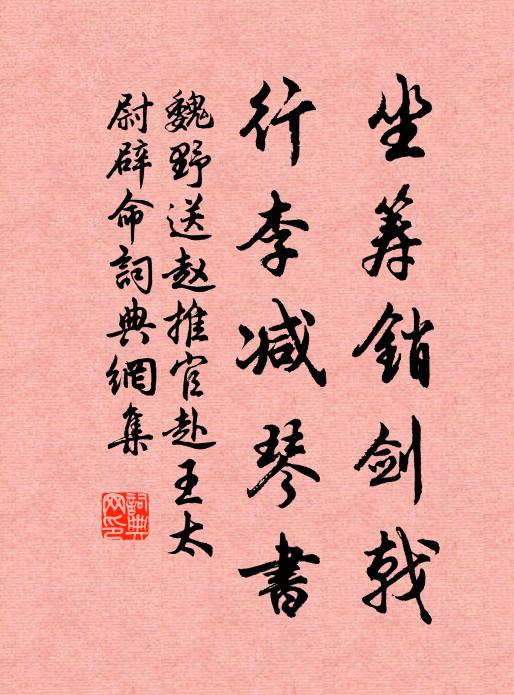 坐筹销剑戟
行李减琴书
魏野送赵推官赴王太
尉辟命詞典網集
詞典網印